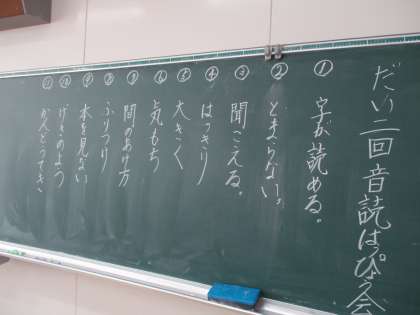 だい二回音読はっぴょう会
① 字が読める。
② とまらない。
③ 聞こえる。
④ はっきり
⑤ 大きく
⑥ 気もち
⑦ 間のあけ方
⑧ ふりつけ
⑨ 本を見ない
⑩ げきのよう
⑪